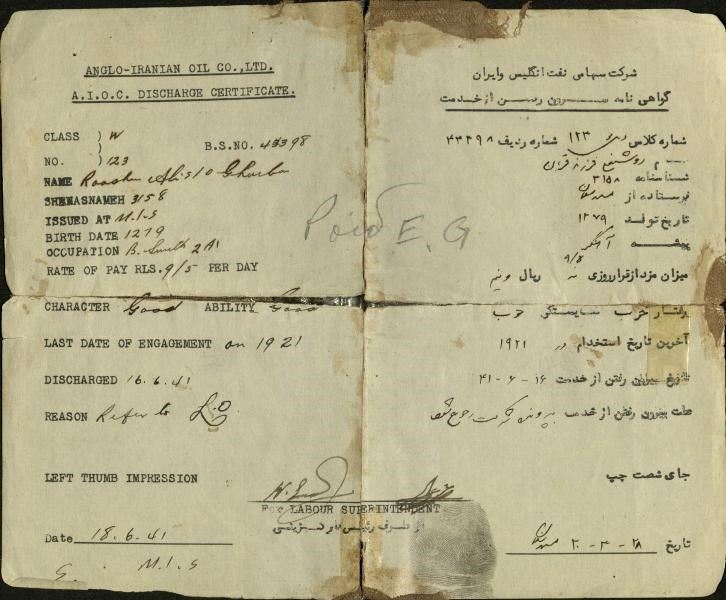 ANGLO-IRANIAN OIL CO.,LTD.
A.I.O.C. DISCHARGE CERTIFICATE.
CLASS ) W
)
B.S.NO. 43398
NO. ) 123
NAME
SHENASNAMEH 3158
ISSUED AT M.I.S
BIRTH DATE 1279
OCCUPATION B. Smith 2
RATE OF PAY RLS. 9/5 PER DAY
CHARACTER Good ABILITY Good
LAST DATE OF ENGAGEMENT on 1921
DISCHARGED 16.6.41
REASON Refer to
LEFT THUMB IMPRESSION
Date 18.6.41
M.I.S
Paid E.G
FOR LABOUR SUPERINTENDENT
از طرف رئیس کارگزینی
شرکت سهامی نفت انگلیس وایران
گواهی نامه بیرون رفتن از خدمت
شماره کلاس ۱۲۳ شماره ردیف ۴۳۳۹۸
شناسنامه ۳۱۵۸
فرستاده از
تاریخ تولد ۱۲۷۹
پیشه آهنگر
۹/۵
میزان مزد از قرار روزی نه ریال ونیم
رفتار خوب شایستگی خوب
آخرین تاریخ استخدام در ۱۹۲۱
تاریخ بیرون رفتن از خدمت ۱۶-۶-۴۱
علت بیرون رفتن از خدمت
جای شصت چپ
تاریخ ۲۸-۳-۲۰